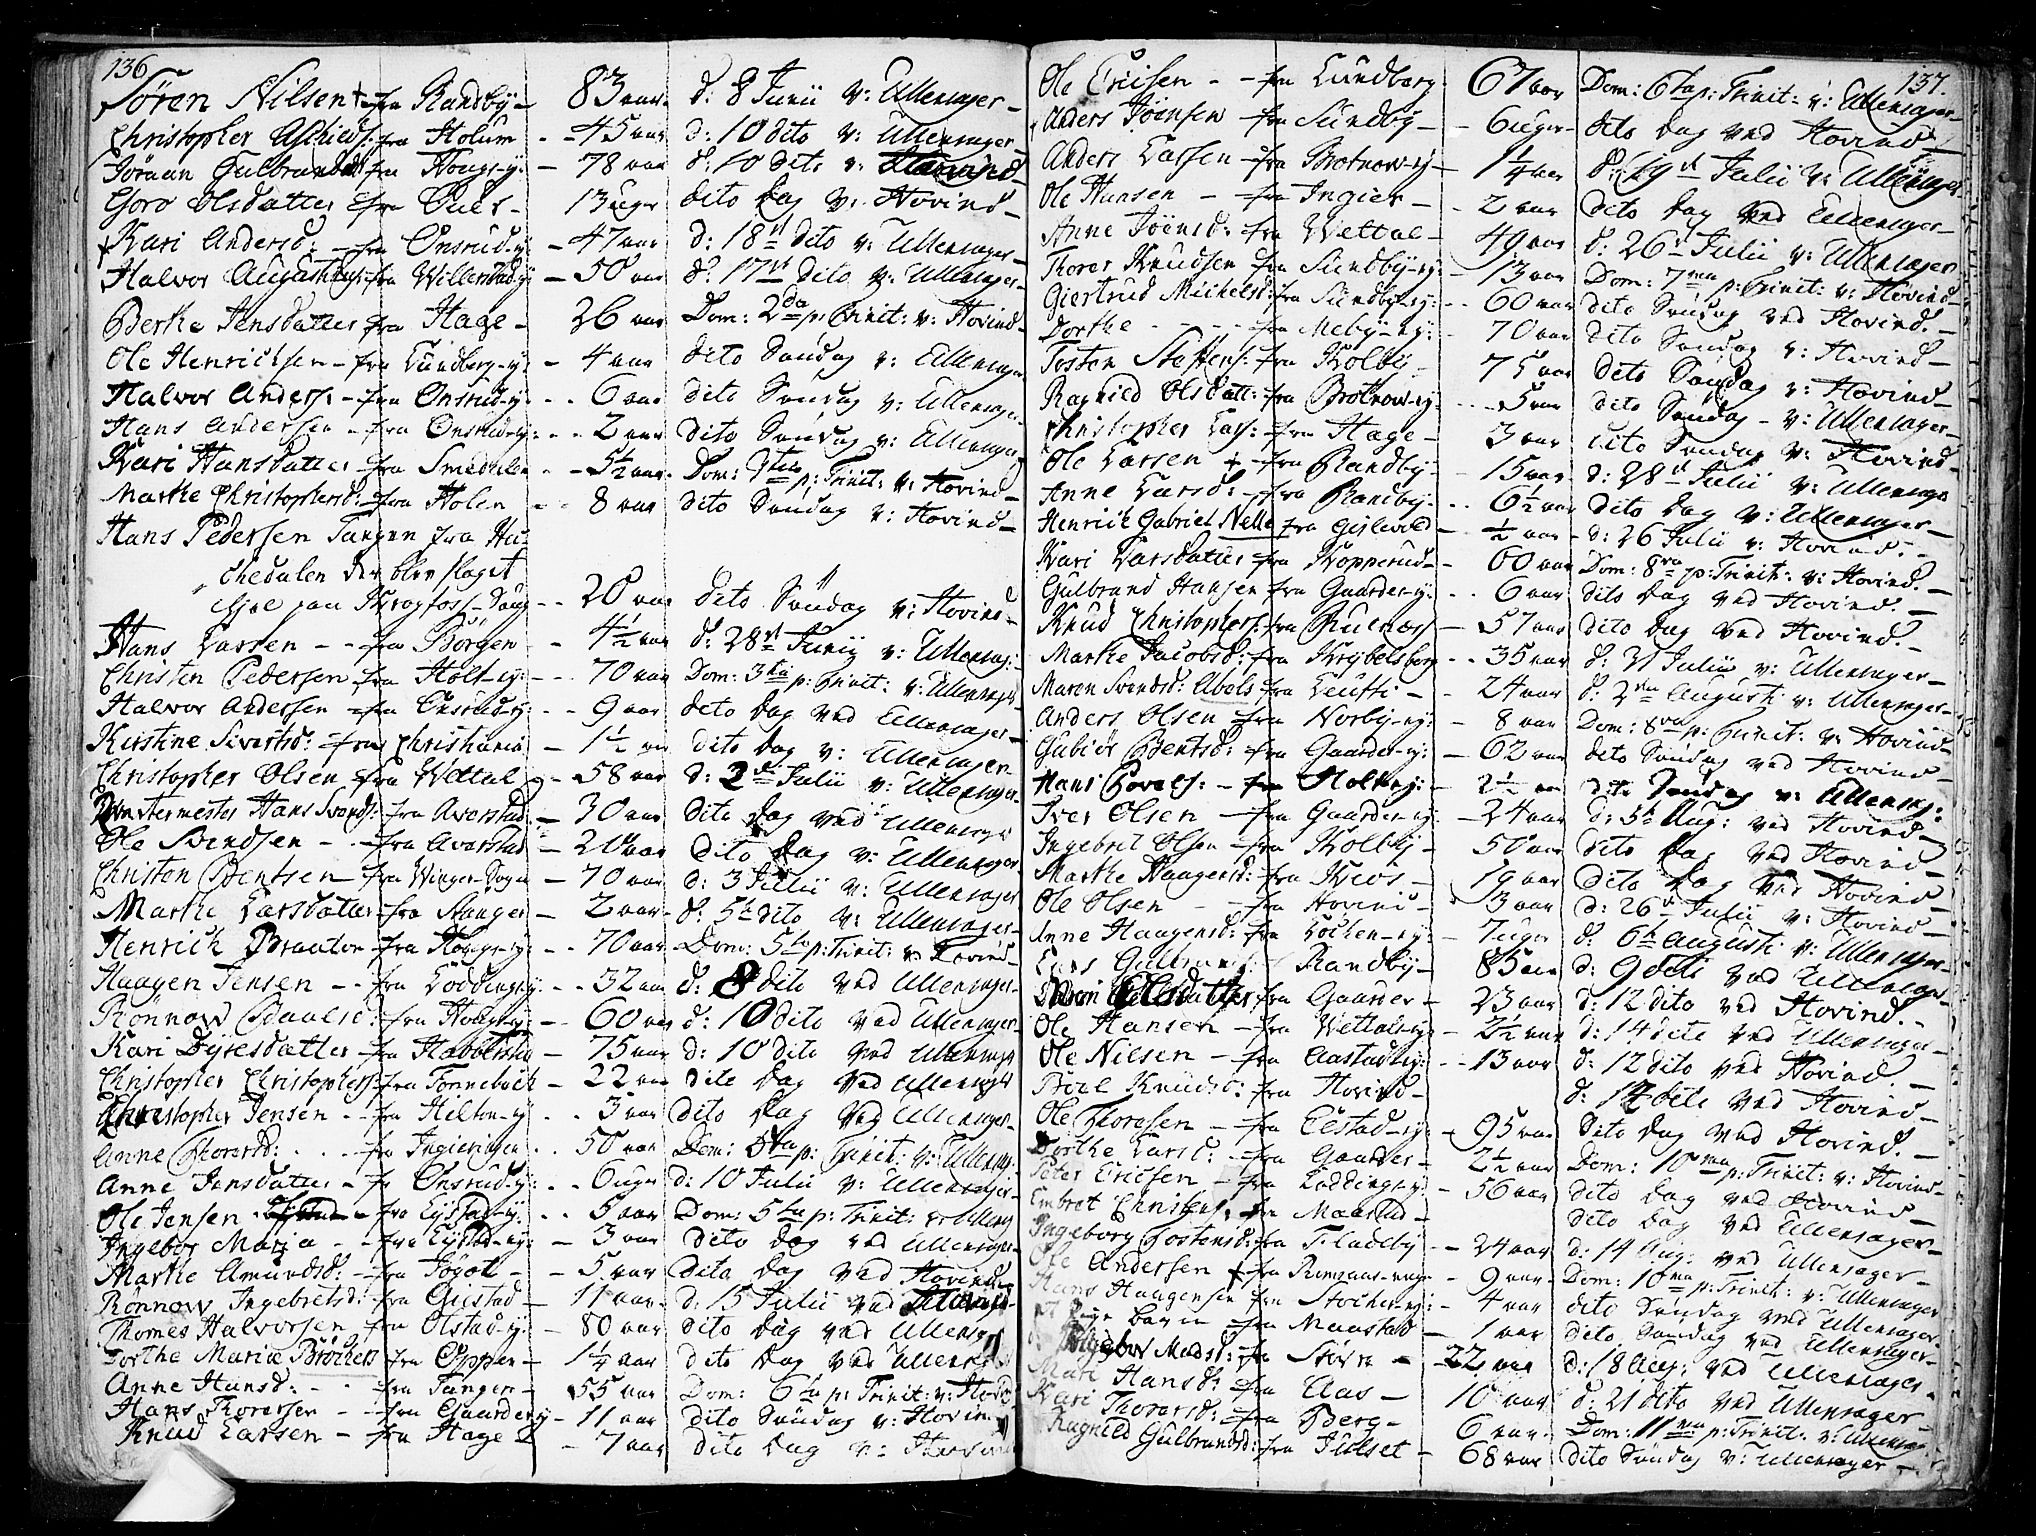 136
Søren Nilsen fra Randby - 83 aar d: 8 Junii v: Ullensager
Christopher fra Holum - 45 aar d: 10 dito v: Ullensager
Jøraan Gulbrandsd: fra Houg-ey: - 78 aar d: 10 dito v: Hovind
Goro Olsdatter fra - 13 uger dito dag v: Hovind
Kari Andersd: fra Onsrud-ey: - 47 aar d: 18 dito v: Ullensager
Halvor Augustinus: fra - 50 aar d: 17 dito v: Ullensager
Berthe Jensdatter fra Hage - 26 aar Dom: 2da p: Trinit: v: Hovind
Ole Henrichsen - fra Lundberg-ey: - 4 aar dito Søndag v: Ullensager
Halvor Anders: - fra Onsrud-ey: - 6 aar dito Søndag v: Ullensager
Hans Andersen - fra Onsrud-ey: - 2 aar dito Søndag v: Ullensager
Kari Hansdatter fra Smedalen - 5½ aar Dom: p: Trinit: v: Hovind
Marthe Christophersd: fra Holen - 8 aar dito Søndag v: Hovind
Hans Pedersen Tangen fra Hu-
chedalen der blev slaget
ihjel paa Krogfoss-Saug - 20 aar dito Søndag v: Hovind
Hans Larsen - fra Borgen - 4½ aar d: 28 Junij v: Ullensag:
Christen Pedersen fra Holt-ey: - 70 aar Dom: 3tia p: Trinit: v: Ullensager
Halvor Andersen fra Onsrud-ey: - 9 aar dito dag ved Ullensager
Kirstine Sivertsd: fra Christiania - 1½ aar dito dag v: Ullensager
Christopher Olsen fra Wettal - 58 aar d: 2 Julii v: Ullensager
Qvartermester Hans Svends: fra Averstad - 30 aar dito dag ved Ullensager
Ole Svendsen - fra Averstad - 20 aar dito dag v: Ullensager
Christen Bentsen - fra Winger-Sogn - 70 aar d: 3 Julii v: Ullensager
Marthe Larsdatter fra Hanger - 2 aar d: 5te dito v: Ullensager
Henrich Braaten fra Houg-ey: - 70 aar Dom: 5ta p: Trinit: v: Hovind
Haagen Jensen - fra Lodding-ey: - 32 aar d: 8 dito ved Ullensager
Rønnow Paulsd: fra Houg-ey: - 60 aar d: 10 dito ved Ullensager
Kari Dyresdatter - fra - 75 aar d: 10 dito ved Ullensager
Christopher Christophers: fra Tonneboth - 22 aar dito dag ved Ullensager
Christopher Jensen - fra Hilton-ey: - 3 aar dito dag ved Ullensager
Anne Thorersd: - fra - 50 aar Dom: p: Trinit: v: Ullensag:
Anne Jensdatter - fr Onsrud-ey: - 6 uger d: 10 Julii v: Ullensager
Ole Jensen - fra Eystad-ey: - 5 aar Dom: 5ta p: Trinit: v: Ullensag
Ingebor Maria - fra Eystad-ey: - 3 aar dito dag ved Ullensager
Marthe Amundsd: - fra - 5 aar dito dag ved Hovind
Rønnow Ingebretsd: fra Gustad - 11 aar d: 15 Julii ved
Thomes Halvorsen fra Olstad-ey: - 80 aar dito dag ved Ullensager
Dorthe Maria Bröchers fra Opper - 1¼ aar dito dag ved Ullensager
Anne Hansd: - fra Tangen - 55 aar Dom: 6ta p: Trinit: v: Hovind
Hans Thorersen - fra Gaarder-ey - 11 aar dito Søndag v: Hovind
Knud Larsen - fra Hage - 7 aar dito dag v: Hovind
137.
Ole Ericsen - fra Lundberg 67 aar Dom: 6ta p: Trinit: v: Ullensager
Anders Joensen fra Sundby - 6 uger dito dag ved Hovind
Anders Larsen - fra Brotnow-ey - 1¼ aar d: 19 Julii v: Ullensager
Ole Hansen - fra Ingier - 2 aar dito dag ved Ullensager
Anne Joensd: fra Wettal - 49 aar d: 26 Julii v: Ullensager
Thorer Knudsen fra Sundby-ey - 13 aar Dom: 7ma p: Trinit: v: Hovind
Giertrud Michelsd: fra Sundby-ey: - 60 aar dito Søndag ved Hovind
Dorthe - fra Meby-ey: - 70 aar dito Søndag v: Hovind
Tosten Steffens: fra Kolby - 75 aar dito Søndag v: Hovind
Ragnild Olsdatt: fra Brotnow-ey: - 5 aar dito Søndag - v: Ullensager
Christopher Lars: fra Hage - 3 aar dito Søndag v: Hovind
Ole Larsen - fra Randby - 15 aar d: 28 Julii v: Ullensager
Anne Larsd: - fra Randby - 6½ aar dito dag v: Ullensager
Henrich Gabriel Nelle fra Gislevold - ½ aar - d: 26 Julii v: Hovind
Kari Larsdatter fra Kopperud - 60 aar Dom: 8va p: Trinit: v: Hovind
Gulbrand Hansen fra Gaarder-ey: - 6 aar dito dag ved Hovind
Knud Christophers: fra Rulnæs - 57 aar dito dag ved Hovind
Marthe Jacobsd: fra - 35 aar d: 31 Julii v: Ullensager
Maren Svendsd: Abels fra - 24 aar d: 2den Augusti v: Ullensager
Anders Olsen - fra Norby-ey: - 8 aar Dom: 8va p: Trinit: v: Hovind
Gubiør Bentsd: fra Gaarder-ey: - 62 aar dito Søndag ved Hovind
Hans - fra Holt-ey: - 2½ aar dito Søndag v: Ullensag:
Iver Olsen - fra Gaarder-ey - 24 aar d: 5te Aug: ved Hovind
Ingebret Olsen - fra Kolby - 50 aar dito dag ved Hovind
Marthe Haagensd: fra - 19 aar dito dag ved Hovind
Ole Olsen - fra Hovind - 3 aar d: 26 Julii v: Hovind
Anne Haagensd: fra Lochen-ey: - 7 uger d: 6te Augusti v: Ullensager
Lars Gulbrands: - Randby - 85 aar d: 9 dito ved Ullensager
fra Gaarder - 23 aar d: 12 dito ved Hovind
Ole Hansen - fra Wettal-ey - 2½ aar d: 14 dito ved Ullensager
Ole Nilsen - fra Aastad-ey: - 13 aar d: 12 dito ved Hovind
Boel Knudsd: fra Hovind - d: 12 dito ved Hovind
Ole Thoresen - fra Elstad-ey: - 95 aar dito dag ved Hovind
Dorthe Larsd: - fra Gaarder - 2½ aar Dom: 10ma p: Trinit: v: Hovind
Peter Ericsen - fra Lodding-ey: - 56 aar dito dag ved Hovind
Embret Christens: fra Maastad - dito dag ved Ullensager
Ingeborg Tostensd: fra Fladeby - 24 aar d: 14 Aug: ved Ullensager
Ole Andersen fra - 9 aar Dom: 10ma p: Trinit: v: Ullensager
Hans Haagensen fra Stochen-ey: - 4 aar dito Søndag ved Ullensager
barn fra Maastad - 1 aar dito Søndag ved Ullensager
Ingebor Madsd: fra - 22 aar d: 18 Aug: ved Ullensager
Mari Hansd: fra Aas - 10 aar d: 21 dito ved Ullensager
Kari Thorersd: - fra Berg - 6 aar Dom: 11ma p: Trinit: v: Ullensager
Ragnild Gulbrandsd: fra Julset - 68 aar dito Søndag v: Ullensager